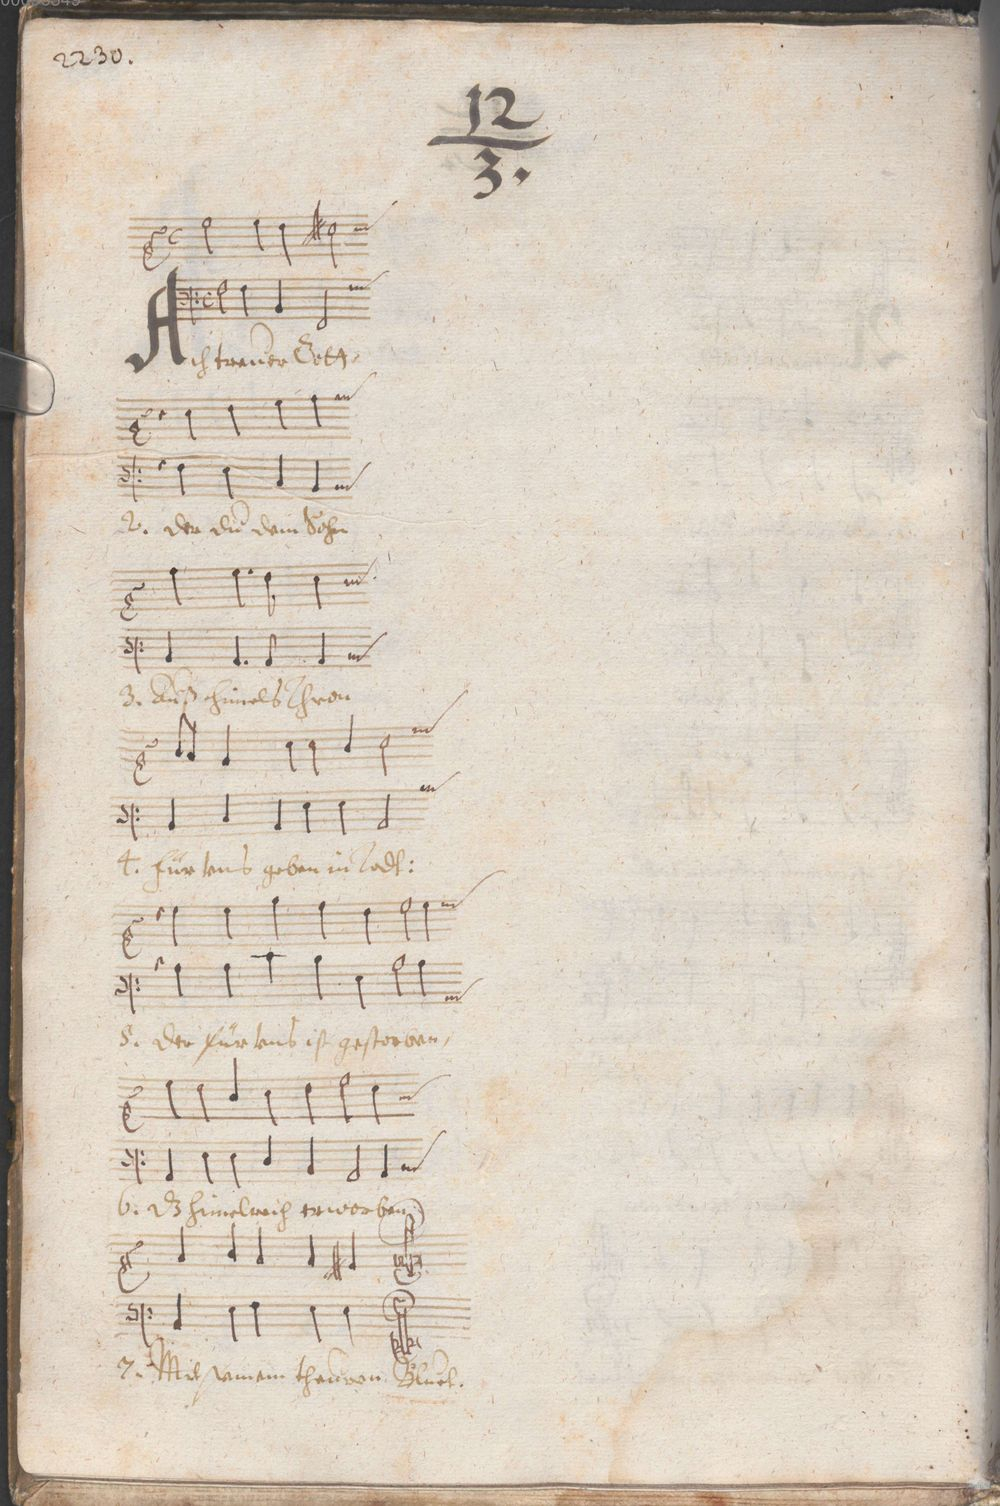 2230.
12
3.
Ach treuer Gott
2. der du dem Sohn
3. Auß himels Thron
4. für uns geben in Todt:
5. der für uns ist gestorben,
6. dz himelreich erworben
7. Mit seinem theuren Bluet.